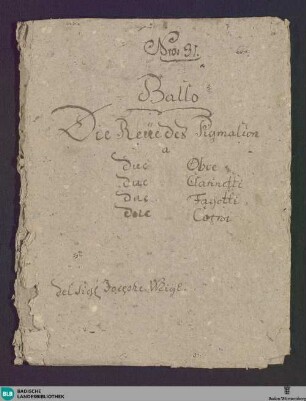 Nro: 91.
Ballo
Die Reüe des Pigmalion
a
due Oboe
due Clarinetti
due Fagotti
due Corni
del Sigl Weigl.
BLB BADISCHE
LANDESBIBLIOTHEK
Baden-Württemberg